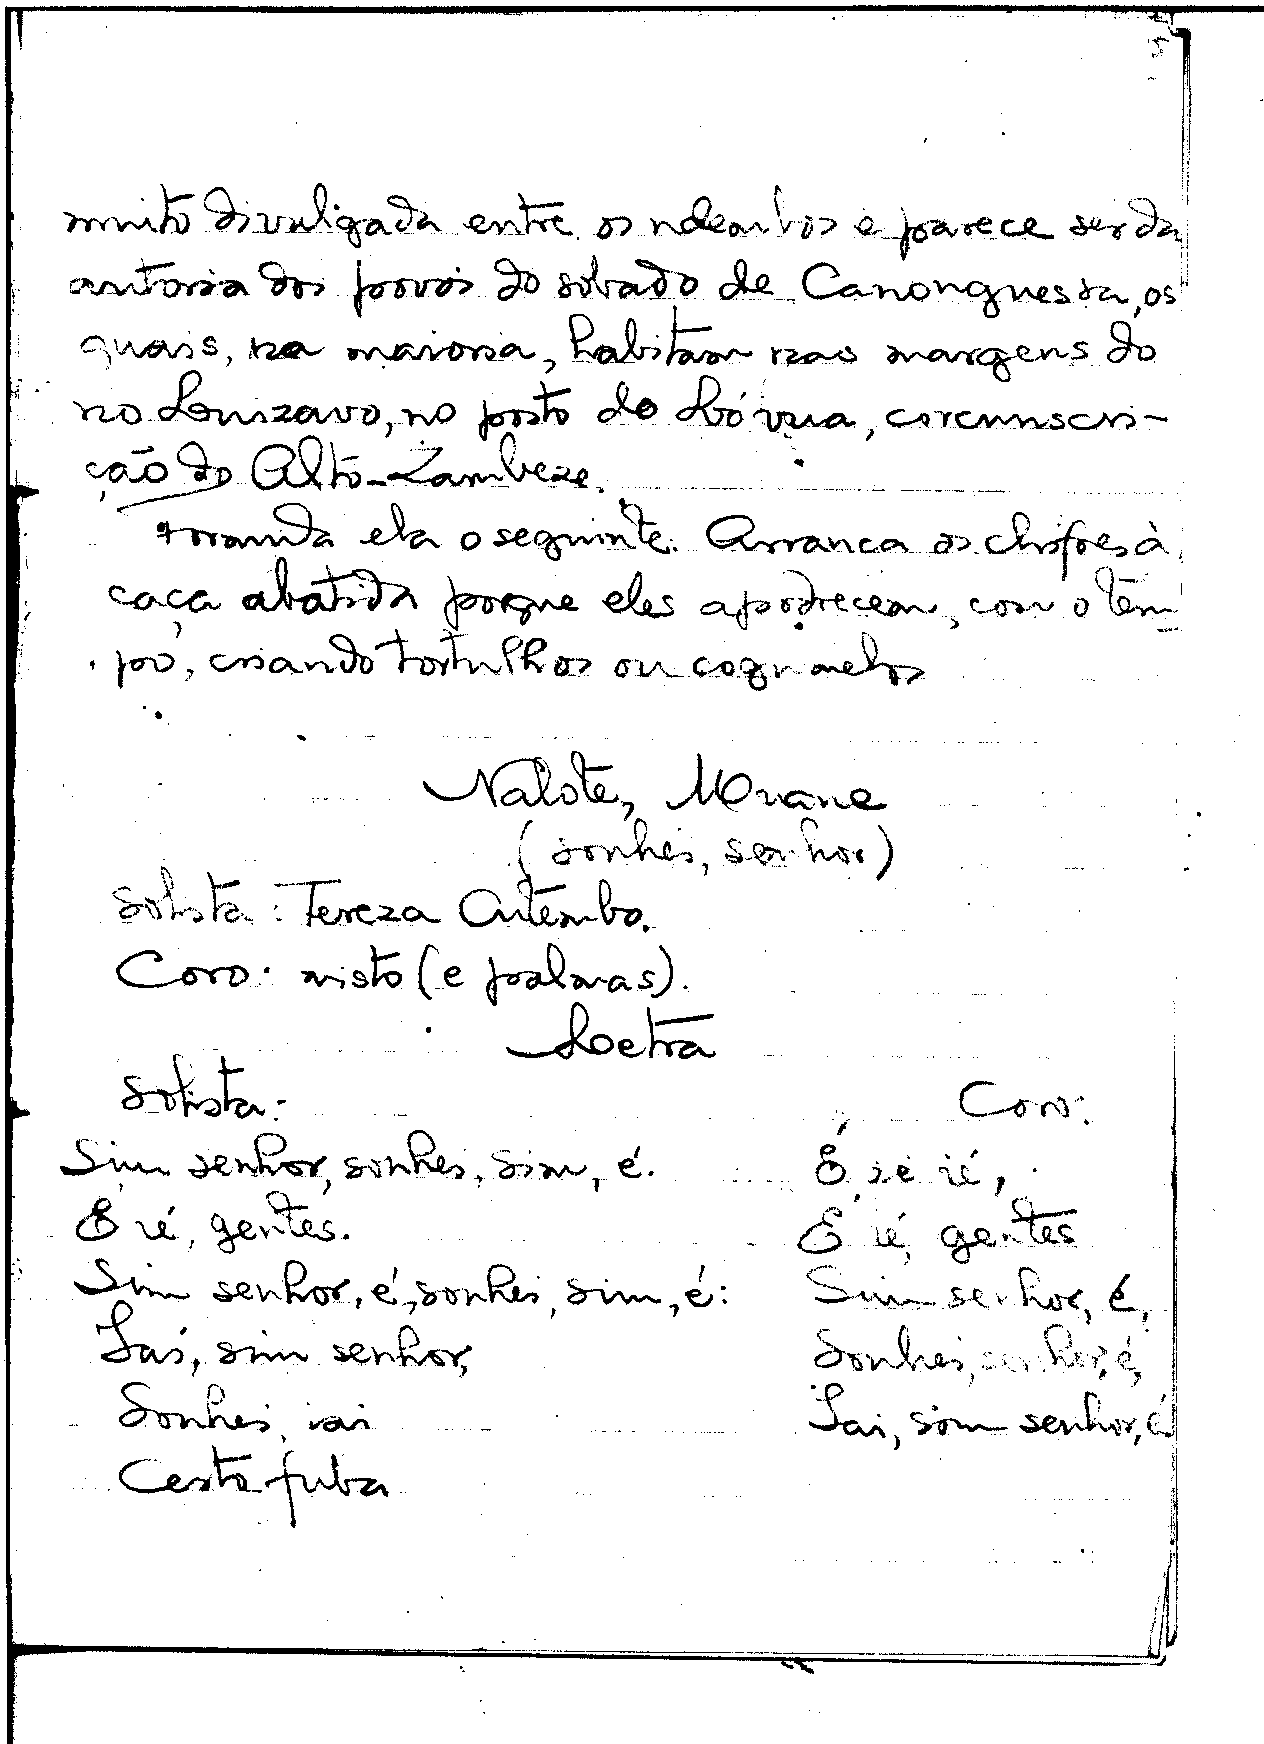 5
muito divulgada entre os ndembos e parece ser da
autoria dos povos do sobado de Canonguessa, os
quais, na maioria, habitam nas margens do
rio Luizavo, no posto do Lóvua, circunscri-
ção do Alto-Zambeze.
ela o seguinte. Arranca os chifres à
caça abatida porque eles apodrecem, com o têm-
po, criando tortulhos ou cogumelos
Nalote, Muane
(Sonhei, senhor)
Solista: Tereza Cutembo.
Coro: misto (e palmas).
Letra
Solista:
Coro:
Sim senhor, sonhei, sim, é.
É ié ié,
É ié, gentes.
É ié, gentes
Sim senhor, é, sonhei, sim, é:
Sim senhor, é,
Iai, sim senhor,
Sonhei, senhor, é,
Sonhei, iai
Iai, sim senhor, é
Cesto fuba